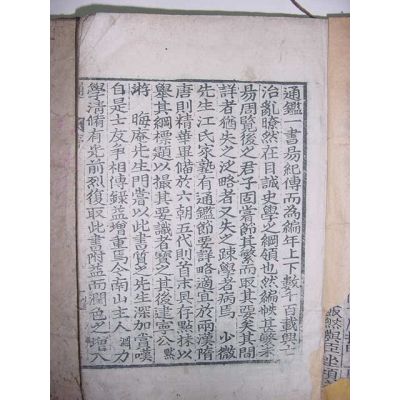 通鑑一書易紀傳而為編年上下數千百載興亡
治亂瞭然在目誠史學之綱領也然編帙甚繁未
易周覽後之君子固嘗節其繁而取其要矣其間
詳者猶失之泛略者又失之疎學者病焉 少微
先生江氏家塾有通鑑節要詳略適宜於兩漢隋
唐則精華畢備於六朝五代則首末具存點抹以
舉其綱標題以撮其要識者寶之其後建寧公默
游 晦庵先生門嘗以此書質之先生深加賞嘆
自是士友爭相傳錄益增重焉今南山主人淵力
學清脩有光前烈復取此書附益而潤色之增入